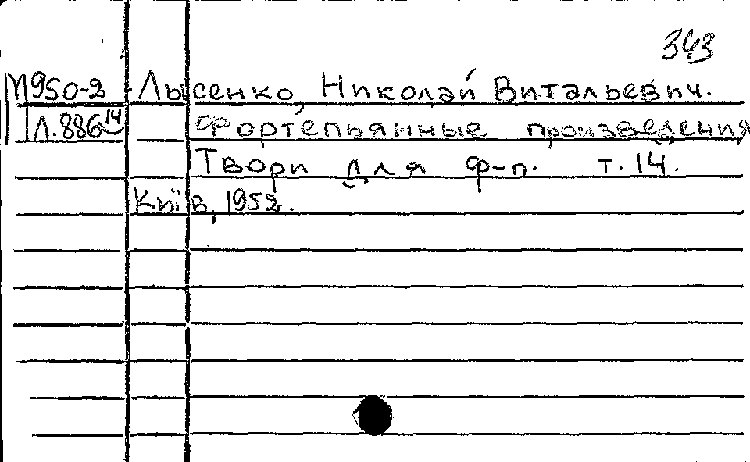 343
М950-2 Лысенко, Николай Витальевич.
Л.886 14 Фортепьянные произведения
Твори для ф-п. т. 14.
Київ, 1952.